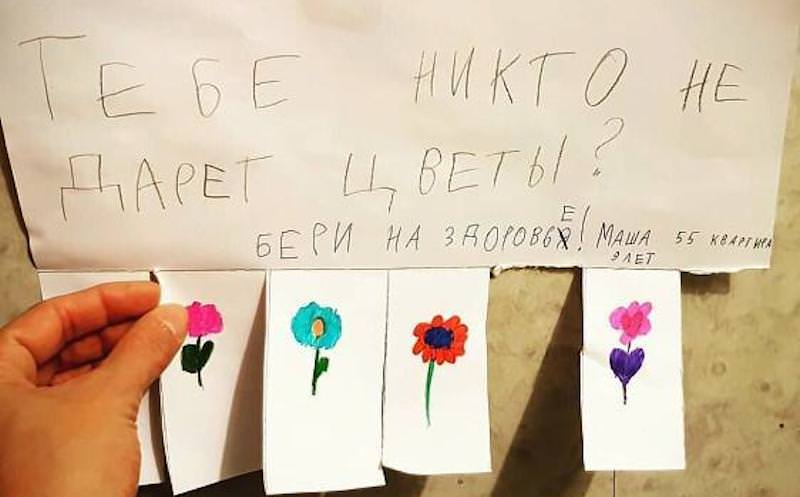 ТЕБЕ НИКТО НЕ
ДАРЕТ ЦВЕТЫ?
БЕРИ НА ЗДОРОВЬЕ! МАША 55 КВАРТИРА
9 ЛЕТ